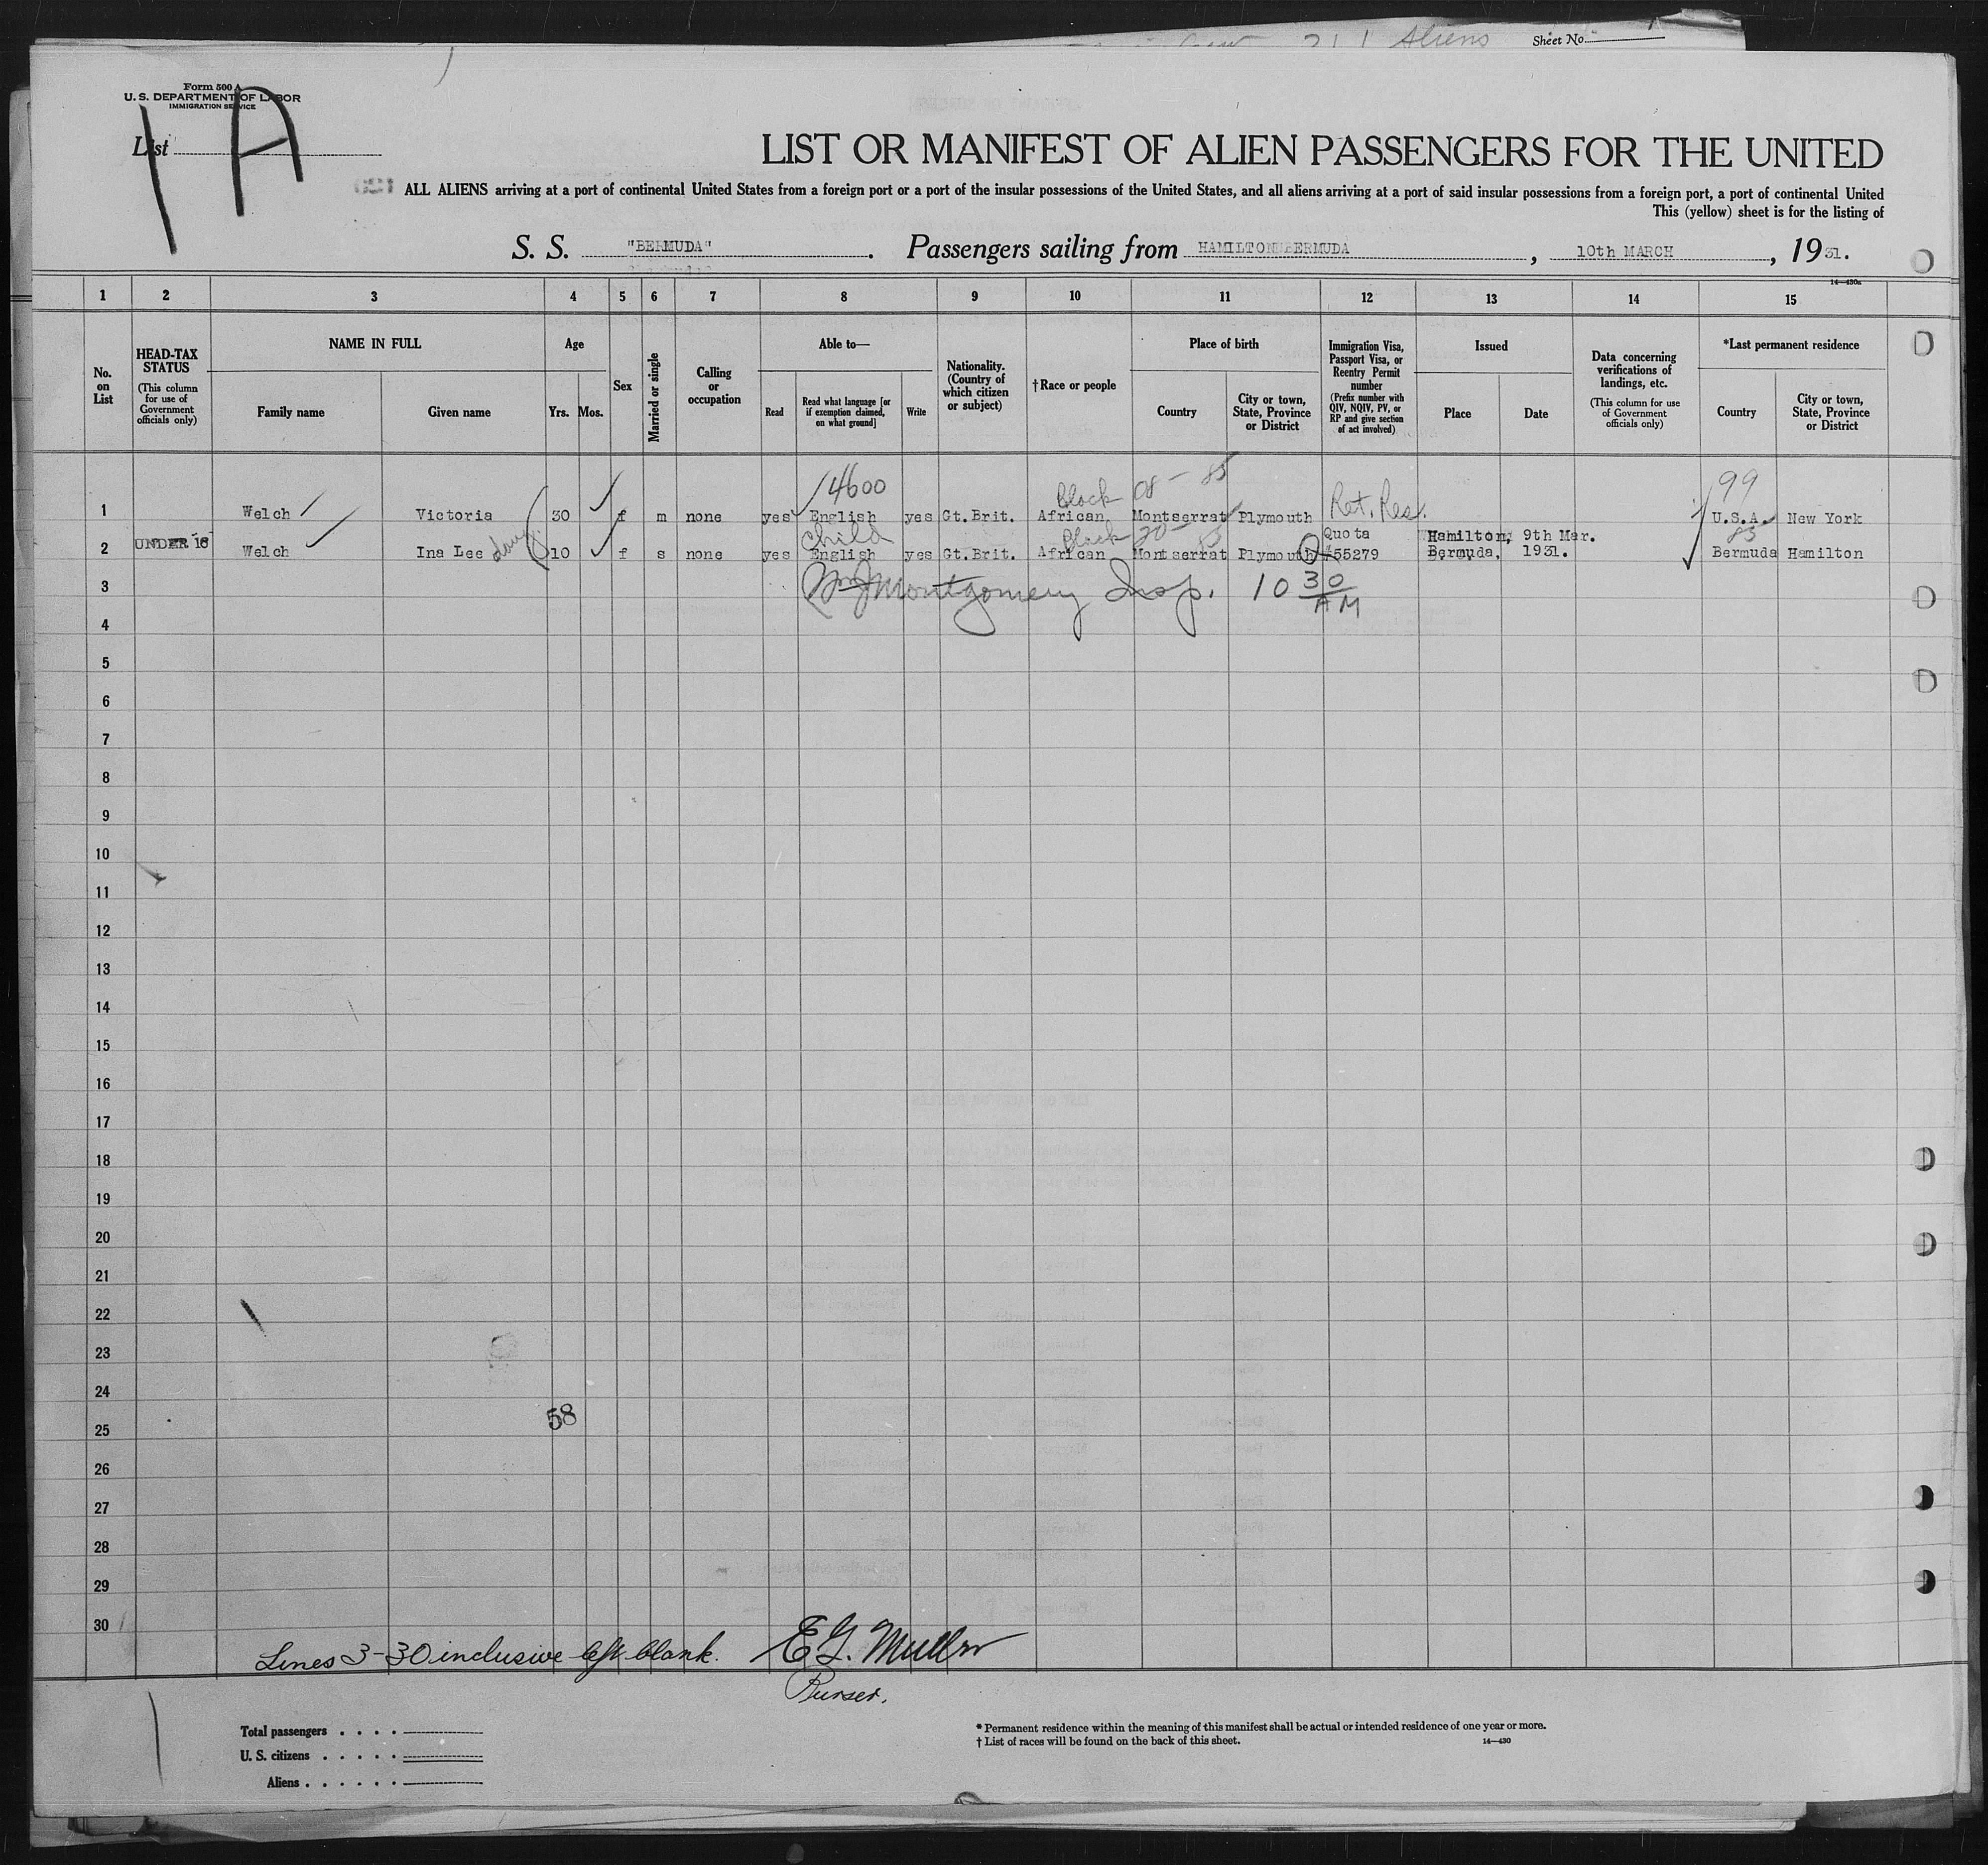 211 Aliens Sheet No.
Form 500 A
U. S. DEPARTMENT OF LABOR
IMMIGRATION SERVICE
List
1 A
LIST OR MANIFEST OF ALIEN PASSENGERS FOR THE UNITED
ALL ALIENS arriving at a port of continental United States from a foreign port or a port of the insular possessions of the United States, and all aliens arriving at a port of said insular possessions from a foreign port, a port of continental United
This (yellow) sheet is for the listing of
S. S. "BERMUDA". Passengers sailing from HAMILTON BERMUDA, 10th MARCH, 1931.
14—430a
1 2 3 4 5 6 7 8 9 10 11 12 13 14 15
No. on List
HEAD-TAX STATUS
(This column for use of Government officials only)
NAME IN FULL
Family name Given name
Age
Yrs. Mos.
Sex
Married or single
Calling or occupation
Able to—
Read
Read what language [or if exemption claimed, on what ground]
Write
Nationality. (Country of which citizen or subject)
†Race or people
Place of birth
Country
City or town, State, Province or District
Immigration Visa, Passport Visa, or Reentry Permit number
(Prefix number with QIV, NQIV, PV, or RP and give section of act involved)
Issued
Place Date
Data concerning verifications of landings, etc.
(This column for use of Government officials only)
*Last permanent residence
Country
City or town, State, Province or District
14600 Black 08 - 85 99
1 Welch Victoria 30 f m none yes English yes Gt.Brit. African Montserrat Plymouth Ret. Res. U.S.A. New York
child Black 20 - 85 Quota Hamilton, 9th Mar. 85
2 UNDER 16 Welch Ina Lee daug. 10 f s none yes English yes Gt.Brit. African Montserrat Plymouth #55279 Bermuda, 1931. Bermuda Hamilton
3 Montgomery Insp. 10 30 AM
4
5
6
7
8
9
10
11
12
13
14
15
16
17
18
19
20
21
22
23
24
58
25
26
27
28
29
30
Lines 3-30 inclusive left blank. E G. Muller
Purser.
Total passengers . . . .
U. S. citizens . . . . .
Aliens . . . . . .
* Permanent residence within the meaning of this manifest shall be actual or intended residence of one year or more.
† List of races will be found on the back of this sheet. 14—430